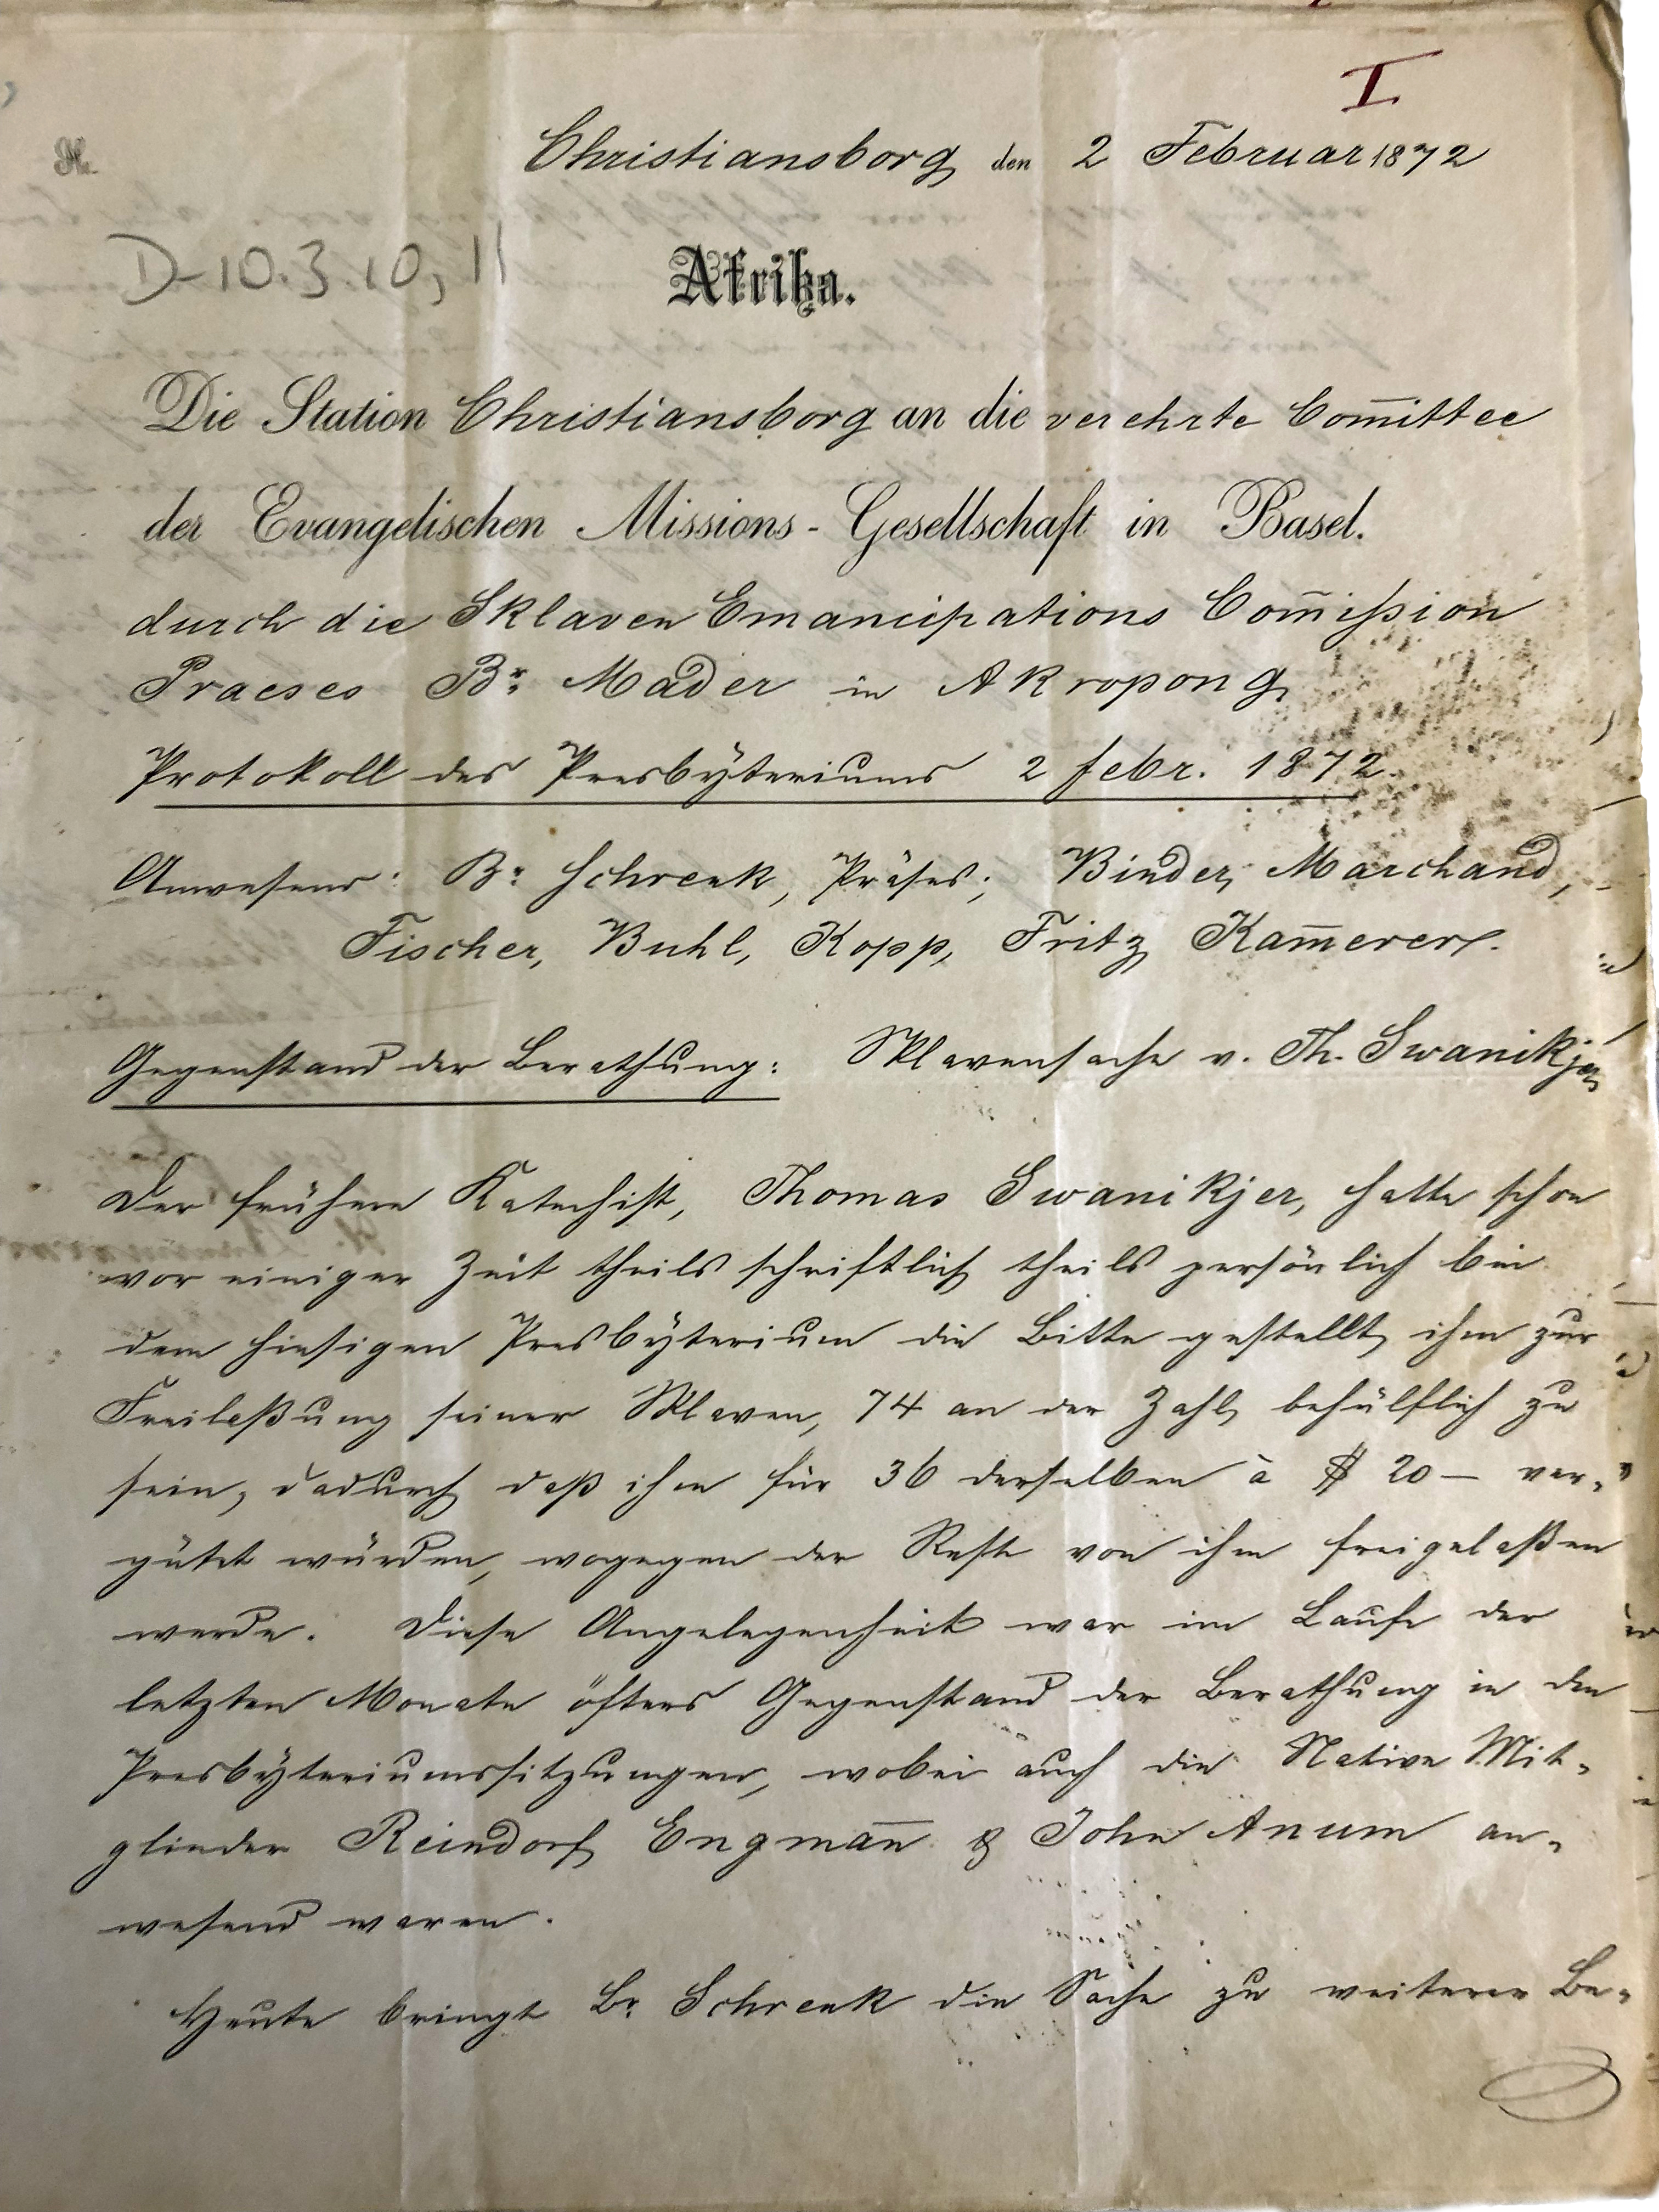 I
Christiansborg den 2 Februar 1872
D-10.3.10, 11
Afrika.
Die Station Christiansborg an die verehrte Com̄ittee
der Evangelischen Missions-Gesellschaft in Basel.
durch die Sklaven Emancipations Com̄ißion
Praeses Br. Mader in Akropong
Protokoll des Presbÿteriums 2 Febr. 1872.
Anwesend: Br. Schrenk, Präses; Binder, Marchand,
Fischer, Buhl, Kopp, Fritz, Kam̄erer.
Gegenstand der Berathung: Sklavensache v. Th. Swanikjer
Der frühere Katechist, Thomas Swanikjer, hatte schon
vor einiger Zeit theils schriftlich theils persönlich bei
dem hiesigen Presbÿterium die Bitte gestellt, ihm zur
Freilaßung seiner Sklaven, 74 an der Zahl, behülflich zu
sein, dadurch daß ihm für 36 derselben à $ 20 — ver-
gütet würden, wogegen der Reste von ihm freigelaßen
werde. Diese Angelegenheit war im Laufe der
letzten Monate öfters Gegenstand der Berathung in den
Presbÿteriumssitzungen, wobei auch die Native Mit-
glieder Reindorf, Engman̄ & John Anum an-
wesend waren.
Heute bringt Br. Schrenk die Sache zu weiterer Be-